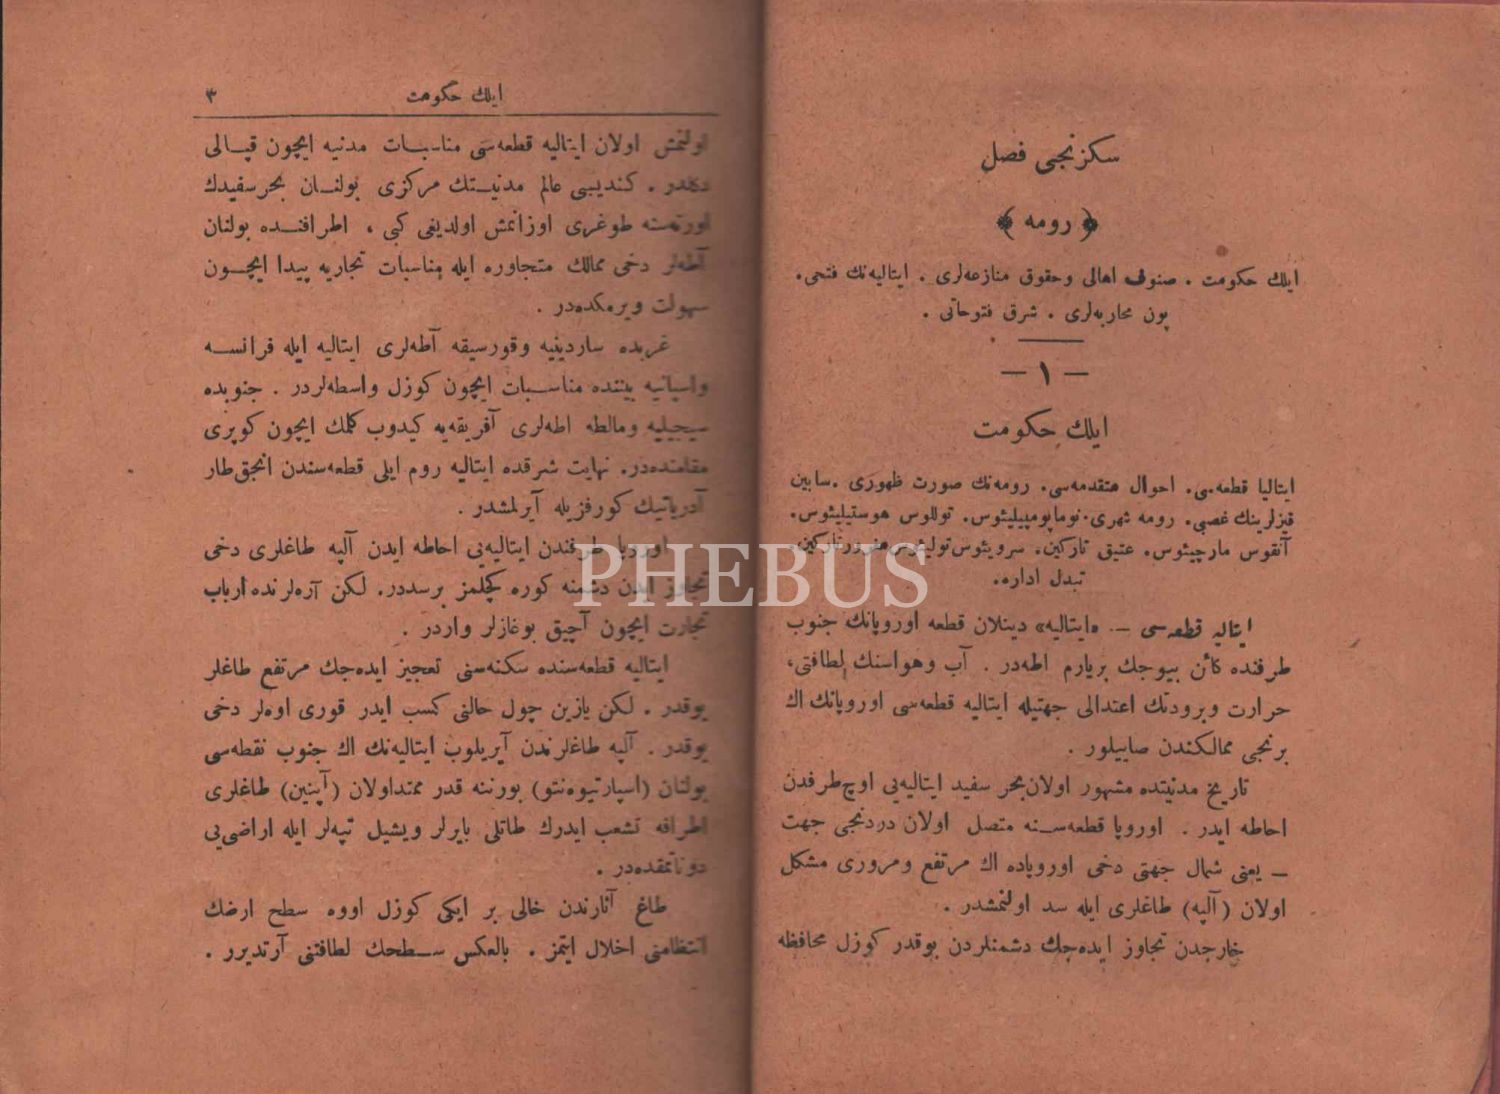 سكزنجی فصل
﴿ رومه ﴾
ایلك حكومت . صنوف اهالی وحقوق منازعه‌لری . ایتالیه‌نك فتحی .
پون محاربه‌لری . شرق فتوحاتی .
— ١ —
ایلك حكومت
ایتالیا قطعه‌سی. احوال متقدمه‌سی. رومه‌نك صورت ظهوری .سابین
قیزلرینك غصبی. رومه شهری. نوماپومپیلیئوس. توللوس هوستیلیئوس.
آنقوس مارچیئوس. عتیق تاركین. سرویئوس تولیئوس. مغرور تاركین.
تبدل اداره.
ایتالیه قطعه‌سی —. «ایتالیه» دینلان قطعه اوروپانك جنوب
طرفنده كائن بیوجك بریارم اطه‌در . آب وهواسنك لطافتی،
حرارت وبرودتك اعتدالی جهتیله ایتالیه قطعه‌سی اوروپانك اك
برنجی ممالكندن صاییلور .
تاریخ مدنیتده مشهور اولان بحر سفید ایتالیه‌یی اوچ طرفدن
احاطه ایدر . اوروپا قطعه‌سنه متصل اولان دردنجی جهت
— یعنی شمال جهتی دخی اوروپاده اك مرتفع ومروری مشكل
اولان (آلپه) طاغلری ایله سد اولنمشدر .
خارجدن تجاوز ایده‌جك دشمنلردن بوقدر كوزل محافظه
ایلك حكومت ٣
اولنمش اولان ایتالیه قطعه‌سی مناسبات مدنیه ایچون قپالی
دكلدر . كندیسی عالم مدنیتك مركزی بولنان بحرسفیدك
اورته‌سنه طوغری اوزانمش اولدیغی كبی ، اطرافنده بولنان
آطه‌لر دخی ممالك متجاوره ایله مناسبات تجاریه پیدا ایچون
سهولت ویرمكده‌در .
غربده ساردینیه وقورسیقه آطه‌لری ایتالیه ایله فرانسه
واسپانیه بیننده مناسبات ایچون كوزل واسطه‌لردر . جنوبده
سیجیلیه ومالطه اطه‌لری آفریقه‌یه كیدوب كلمك ایچون كوپری
مقامنده‌در. نهایت شرقده ایتالیه روم ایلی قطعه‌سندن انجق طار
آدریاتیك كورفزیله آیرلمشدر .
اوروپا طرفندن ایتالیه‌یی احاطه ایدن آلپه طاغلری دخی
تجاوز ایدن دشمنه كوره كچلمز برسددر. لكن آره‌لرنده ارباب
تجارت ایچون آچیق بوغازلر واردر .
ایتالیه قطعه‌سنده سكنه‌سنی تعجیز ایده‌جك مرتفع طاغلر
یوقدر . لكن یازین چول حالنی كسب ایدر قوری اووه‌لر دخی
یوقدر . آلپه طاغلرندن آیریلوب ایتالیه‌نك اك جنوب نقطه‌سی
بولنان (اسپارتیوه‌نتو) بورننه قدر ممتد اولان (آپنین) طاغلری
اطرافه تشعب ایدرك طاتلی بایرلر ویشیل تپه‌لر ایله اراضی‌یی
دوناتمقده‌در .
طاغ آثارندن خالی بر ایكی كوزل اووه سطح ارضك
انتظامنی اخلال ایتمز . بالعكس سطحك لطافتنی آرتدیرر .
PHEBUS